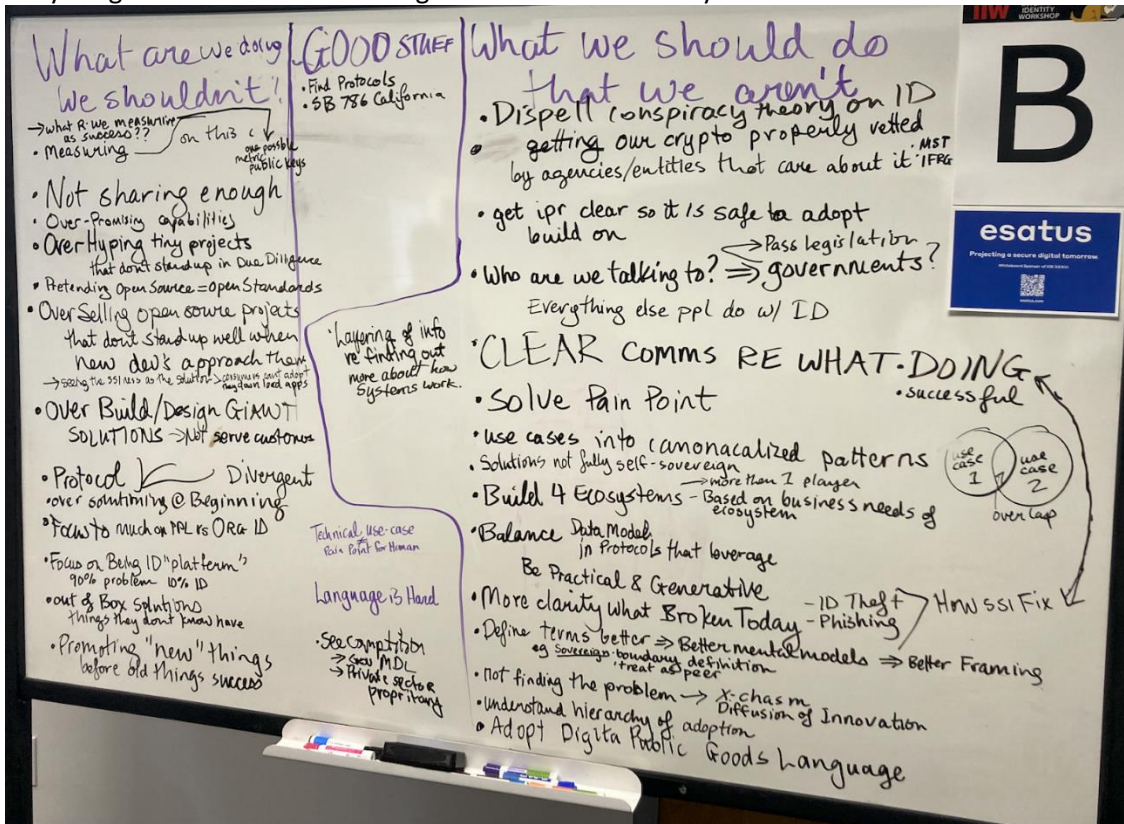 What are we doing
We shouldn't!
→what R we measuring
as success??
• Measuring
on this
one possible
metric
public keys
• Not sharing enough
• Over-Promising capabilities
• Over Hyping tiny projects
that don't stand up in Due Diligence
• Pretending Open Source = open Standards
• Over Selling open source projects
that dont stand up well when
new dev's approach them
→ seeing the SSI ness as the solution > consumers cant adopt
may down load apps
• Over Build/Design GIANT
SOLUTIONS → Not serve customers
• Protocol Divergent
• over solutioning @ Beginning
• Focus to much on PPL vs ORG ID
• Focus on Being ID "platform"
90% problem 10% ID
• out of Box solutions
things they don't know have
• Promoting "new" things
before old things success
GOOD STUFF
• Find Protocols
• SB 786 California
• Layering of info
re finding out
more about how
Systems work.
Technical use-case
≠
Pain Point for Human
Language is Hard
• See Comptition
→ Gov MDL
→ Private sector
propritary
What we should do
that we aren't
• Dispell conspiracy theory on ID
• getting our crypto properly vetted
by agencies/entities that care about it
• MST
• IFRG
• get ipr clear so it is safe to adopt
build on
• Who are we talking to? ⇒ governments?
→ Pass legislation
Everything else ppl do w/ ID
• CLEAR COMMS RE WHAT • DOING
• successful
• Solve Pain Point
• use cases into canonacalized patterns
• Solutions not fully self-sovereign
→ more than 1 player
• Build 4 Ecosystems - Based on business needs of
ecosystem
use
case
1
use
case
2
overlap
• Balance Data Model
in Protocols that leverage
Be Practical & Generative
• More clarity what Broken Today
- ID Theft
- Phishing
How SSI Fix
• Define terms better ⇒ Better mental models ⇒ Better Framing
eg Sovereign • boundary definition
• treat as peer
• not finding the problem → X-chasm
Diffusion of Innovation
• understand hierarchy of adoption
• Adopt Digita Public Goods Language
IIW
IDENTITY
WORKSHOP
B
esatus
Projecting a secure digital tomorrow.
esatus.com